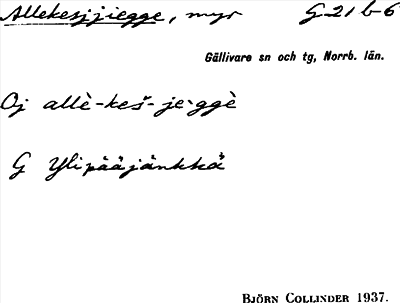 Allekesjjiegge, myr G-21 b-6
Gällivare sn och tg, Norrb. län.
Oj allè-keš-je·ggè
G Ylipääjänkkä
BJÖRN COLLINDER 1937.